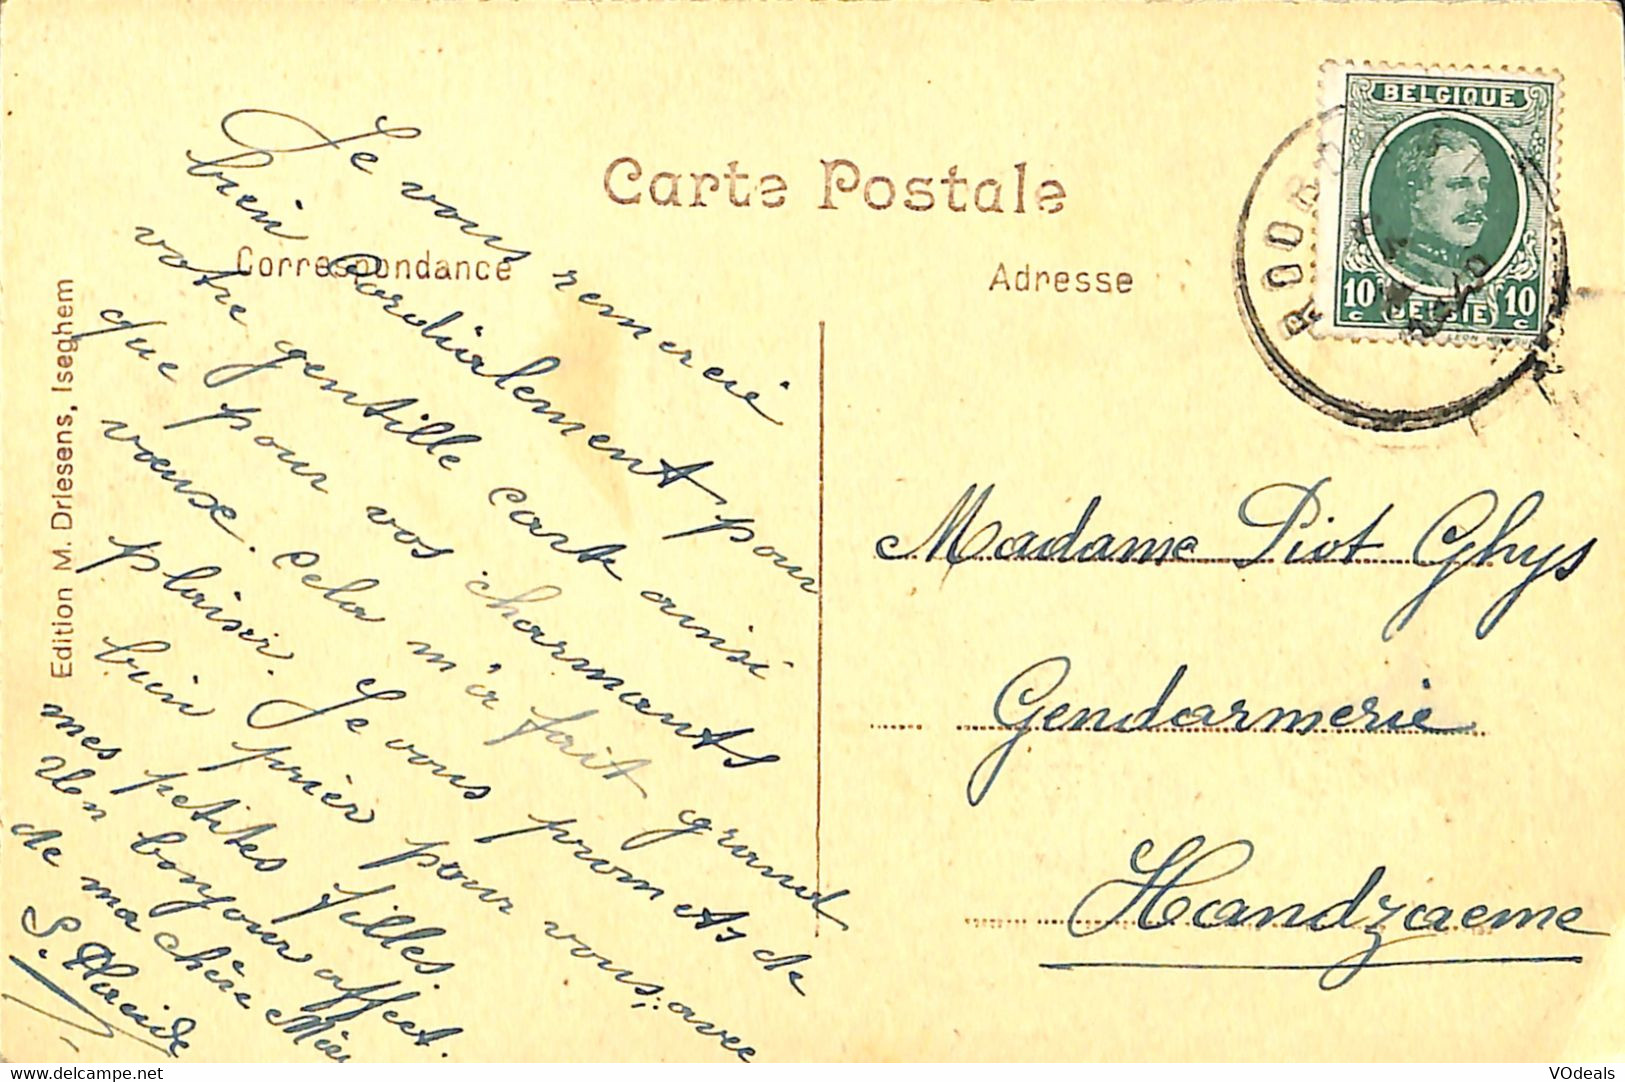 Carte Postale
Correspondance
Adresse
BELGIQUE
10 c
BELGIE
10 c
Edition M. Driesens, Iseghem
Je vous remercie
bien Cordialement pour
votre gentille carte ainsi
que pour vos charmants
vœux. Cela m'a fait grand
plaisir. Je vous promets de
bien prier pour vous, avec
mes petites filles.
Un bonjour affect.
de ma chère Mère
S. Placide
Madame Piot Ghys
Gendarmerie
Handzaeme
delcampe.net
VOdeals